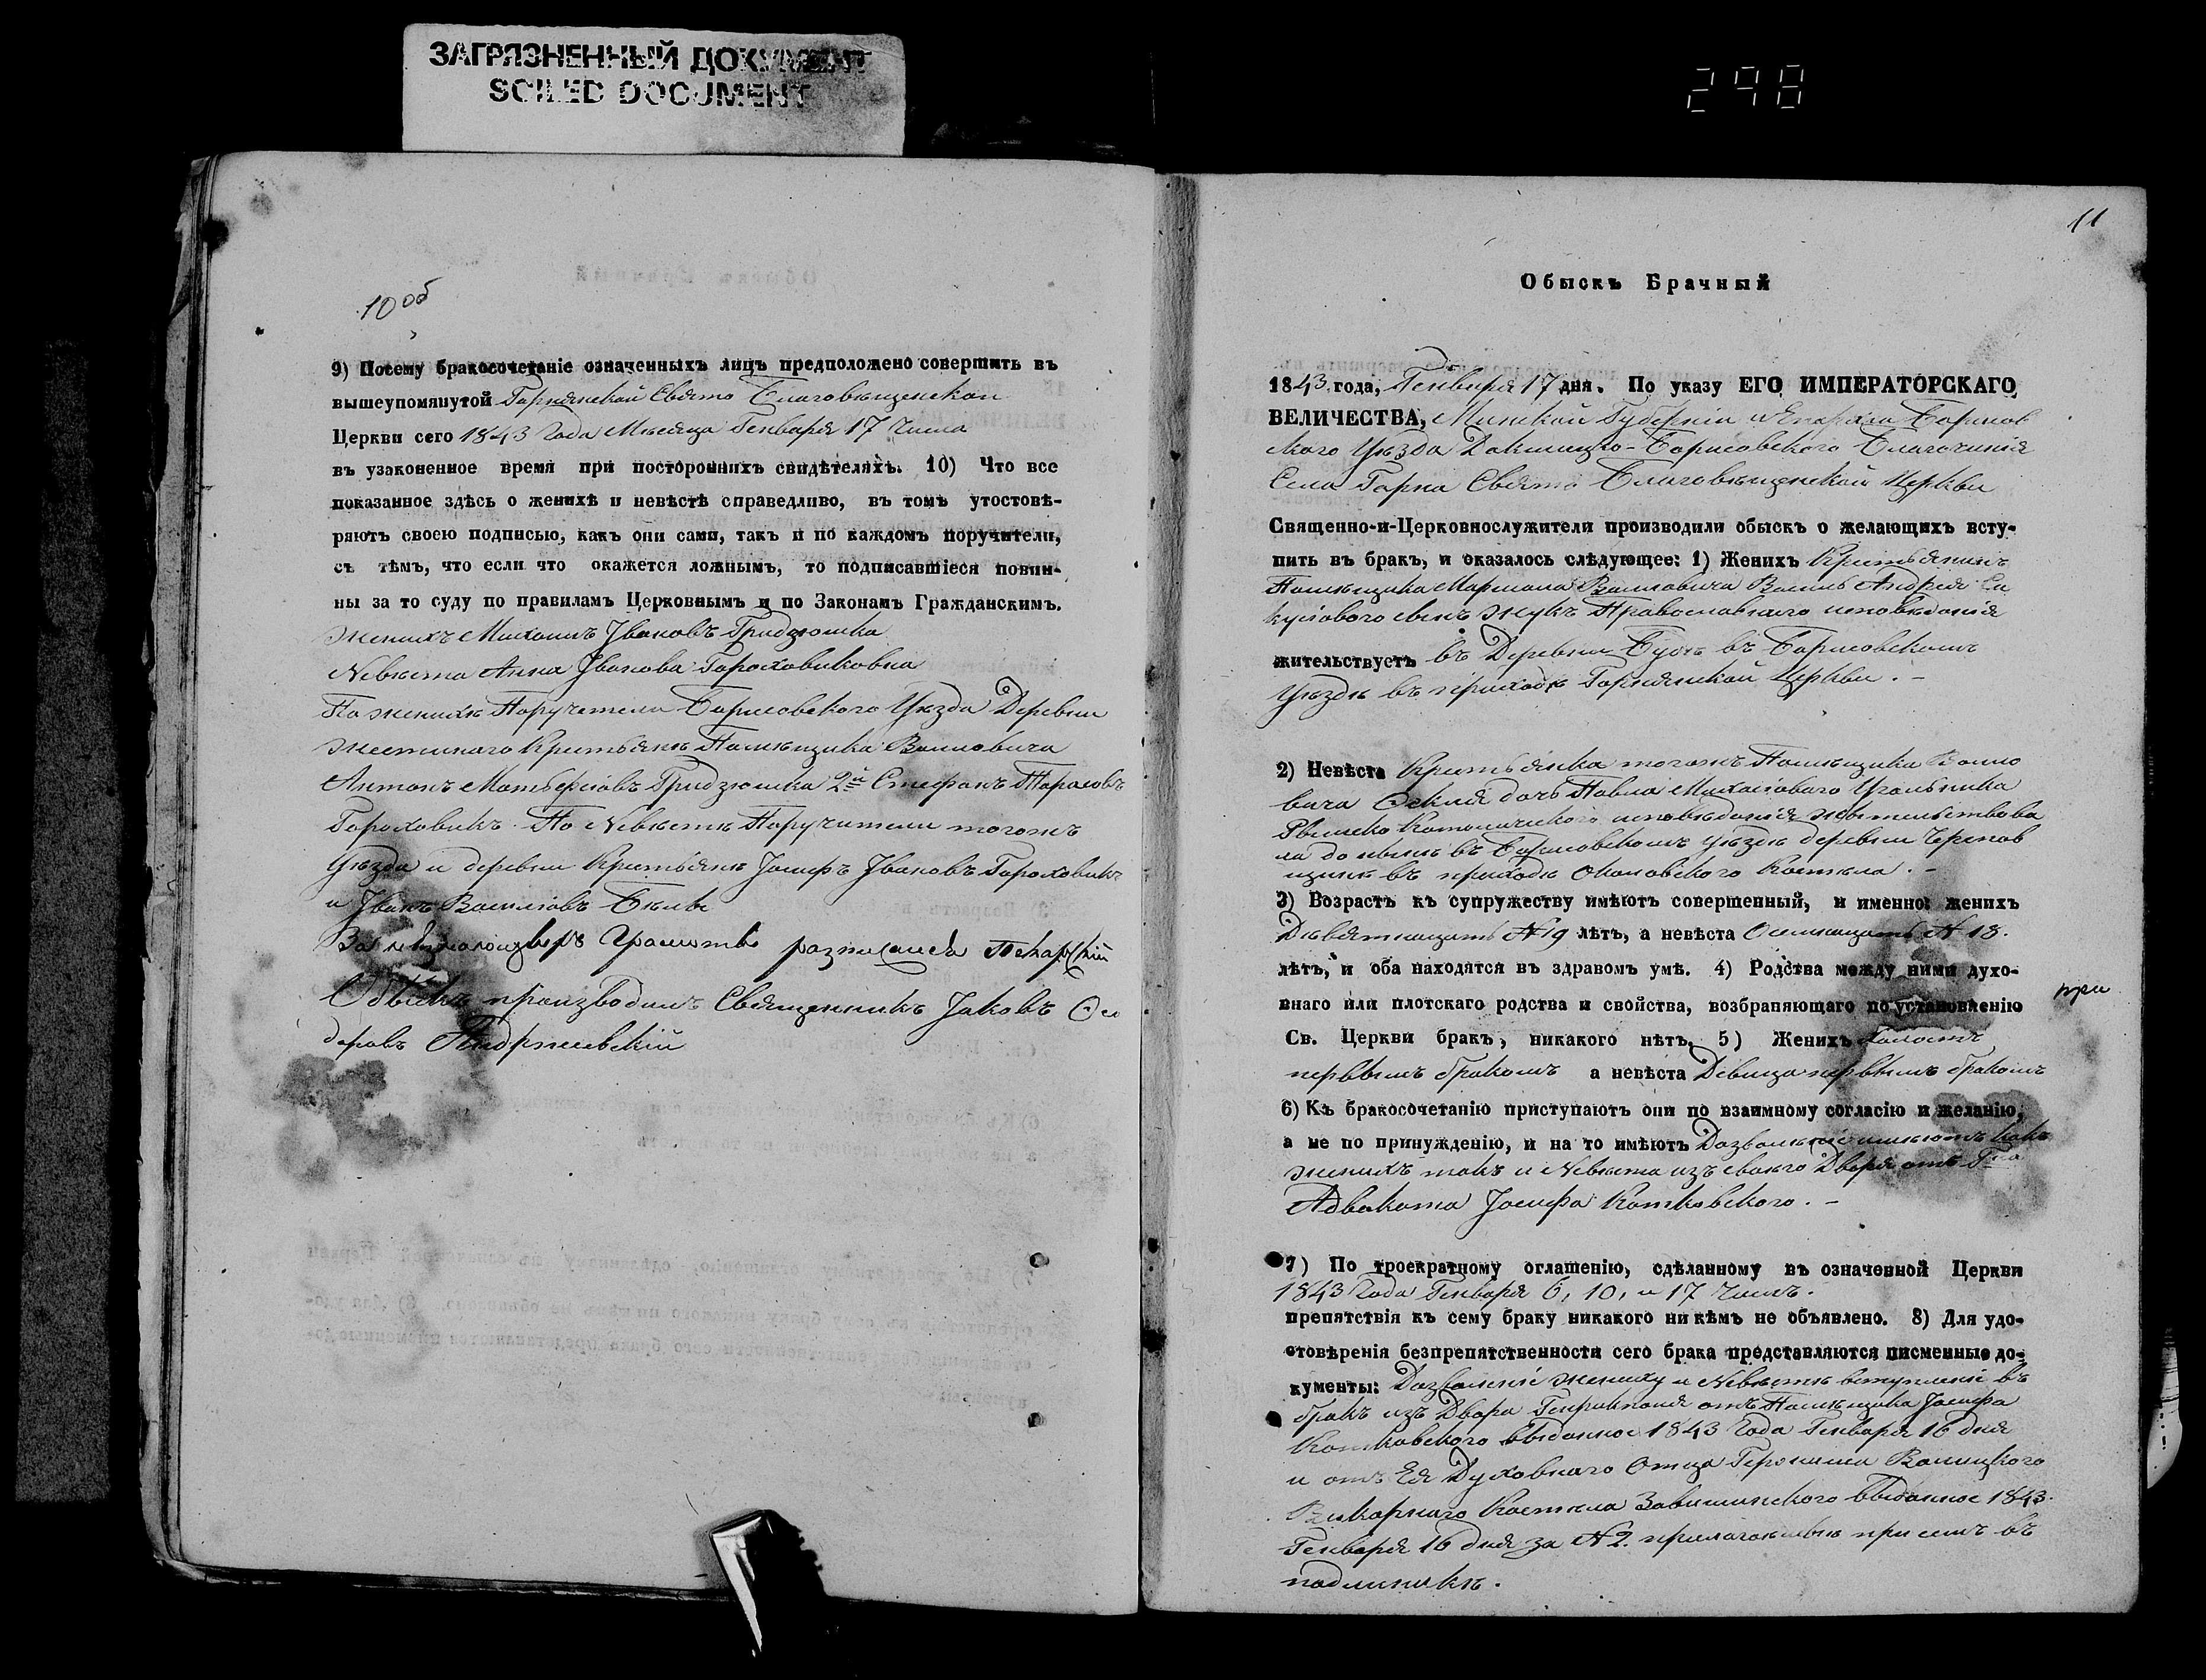 ЗАГРЯЗНЕННЫЙ ДОКУМЕНТ
SOILED DOCUMENT
298
10 об
9) Посему бракосочетаніе означенныхъ лицъ предположено совершить въ
вышеупомянутой Гарнянской Свято Благовѣщенской
Церкви сего 1843 Года Мѣсяца Генваря 17 числа
въ узаконенное время при постороннихъ свидѣтеляхъ. 10) Что все
показанное здѣсь о женихѣ и невѣстѣ справедливо, въ томъ утостовѣ-
ряютъ своею подписью, какъ они сами, такъ и по каждомъ поручители,
съ тѣмъ, что если что окажется ложнымъ, то подписавшіеся повин-
ны за то суду по правиламъ Церковнымъ и по Законамъ Гражданскимъ.
Женихъ Михаилъ Ивановъ Гридзюшка
Невѣста Анна Иванова Гороховиковна
По женихѣ Поручители Борисовского Уѣзда Деревни
Крестьяне Помѣщика Воиловича
Антонъ Матвеевъ Гридзюшка 2й Стефанъ Тарасовъ
Гороховикъ. По Невѣстѣ Поручители тогожъ
Уѣзда и деревни Крестьяне Іосифъ Ивановъ Гороховикъ
и Иванъ Васильевъ
За Грамотѣ
Обыскъ производилъ Священникъ Іаковъ Өео
доровъ
11
Обыскъ Брачный
1843 года, Генваря 17 дня. По указу ЕГО ИМПЕРАТОРСКАГО
ВЕЛИЧЕСТВА, Минской Губерніи и Епархіи Борисов
ского Уѣзда Докшицко-Борисовского Благочинія
Села Гарна Свято Благовѣщенской Церкви
Священно-и-Церковнослужители производили обыскъ о желающихъ всту-
пить въ бракъ, и оказалось слѣдующее: 1) Женихъ Крестьянинъ
Помѣщика Воиловича Василь Андрея
сынъ Жукъ Православнаго исповѣданія
жительствуетъ въ Деревни въ Борисовскомъ
Уѣздѣ въ приходѣ Гарнянской Церкви. -
2) Невѣста Крестьянка тогожъ Помѣщика Воило
вича Өекля дочь Павла Михайлового Угольника
Римско Католического исповѣданія жительствова
ла до нынѣ въ Борисовскомъ Уѣздѣ деревни
въ приходѣ Костела. -
3) Возрастъ къ супружеству имѣютъ совершенный, и именно: женихъ
Дѣвятнацать № 19 лѣтъ, а невѣста Осьмнацать № 18.
лѣтъ, и оба находятся въ здравомъ умѣ. 4) Родства между ними духо-
внаго или плотскаго родства и свойства, возбраняющаго по установленію
при
Св. Церкви бракъ, никакого нѣтъ. 5) Женихъ холостъ
первымъ бракомъ а невѣста Дѣвица первымъ бракомъ
6) Къ бракосочетанію приступаютъ они по взаимному согласію и желанію,
а не по принужденію, и на то имѣютъ Дозволеніе имѣютъ какъ
женихъ такъ и Невѣста изъ своего Двора отъ Гна
Адвоката Іосифа Котковского. -
7) По троекратному оглашенію, сдѣланному въ означенной Церкви
1843 Года Генваря 6, 10, и 17 числъ.
препятствія къ сему браку никакого ни кѣмъ не объявлено. 8) Для удо-
стовѣренія безпрепятственности сего брака представляются писменные до-
кументы: Дозволеніе жениху и Невѣстѣ вступленіе въ
бракъ изъ Двора отъ Помѣщика Іосифа
Котковского выданное 1843 Года Генваря 16 дня
и отъ Ея Духовнаго Отца Геронима
Костела выданное 1843.
Генваря 16 дня за № 2. при семъ въ
подлинникѣ.